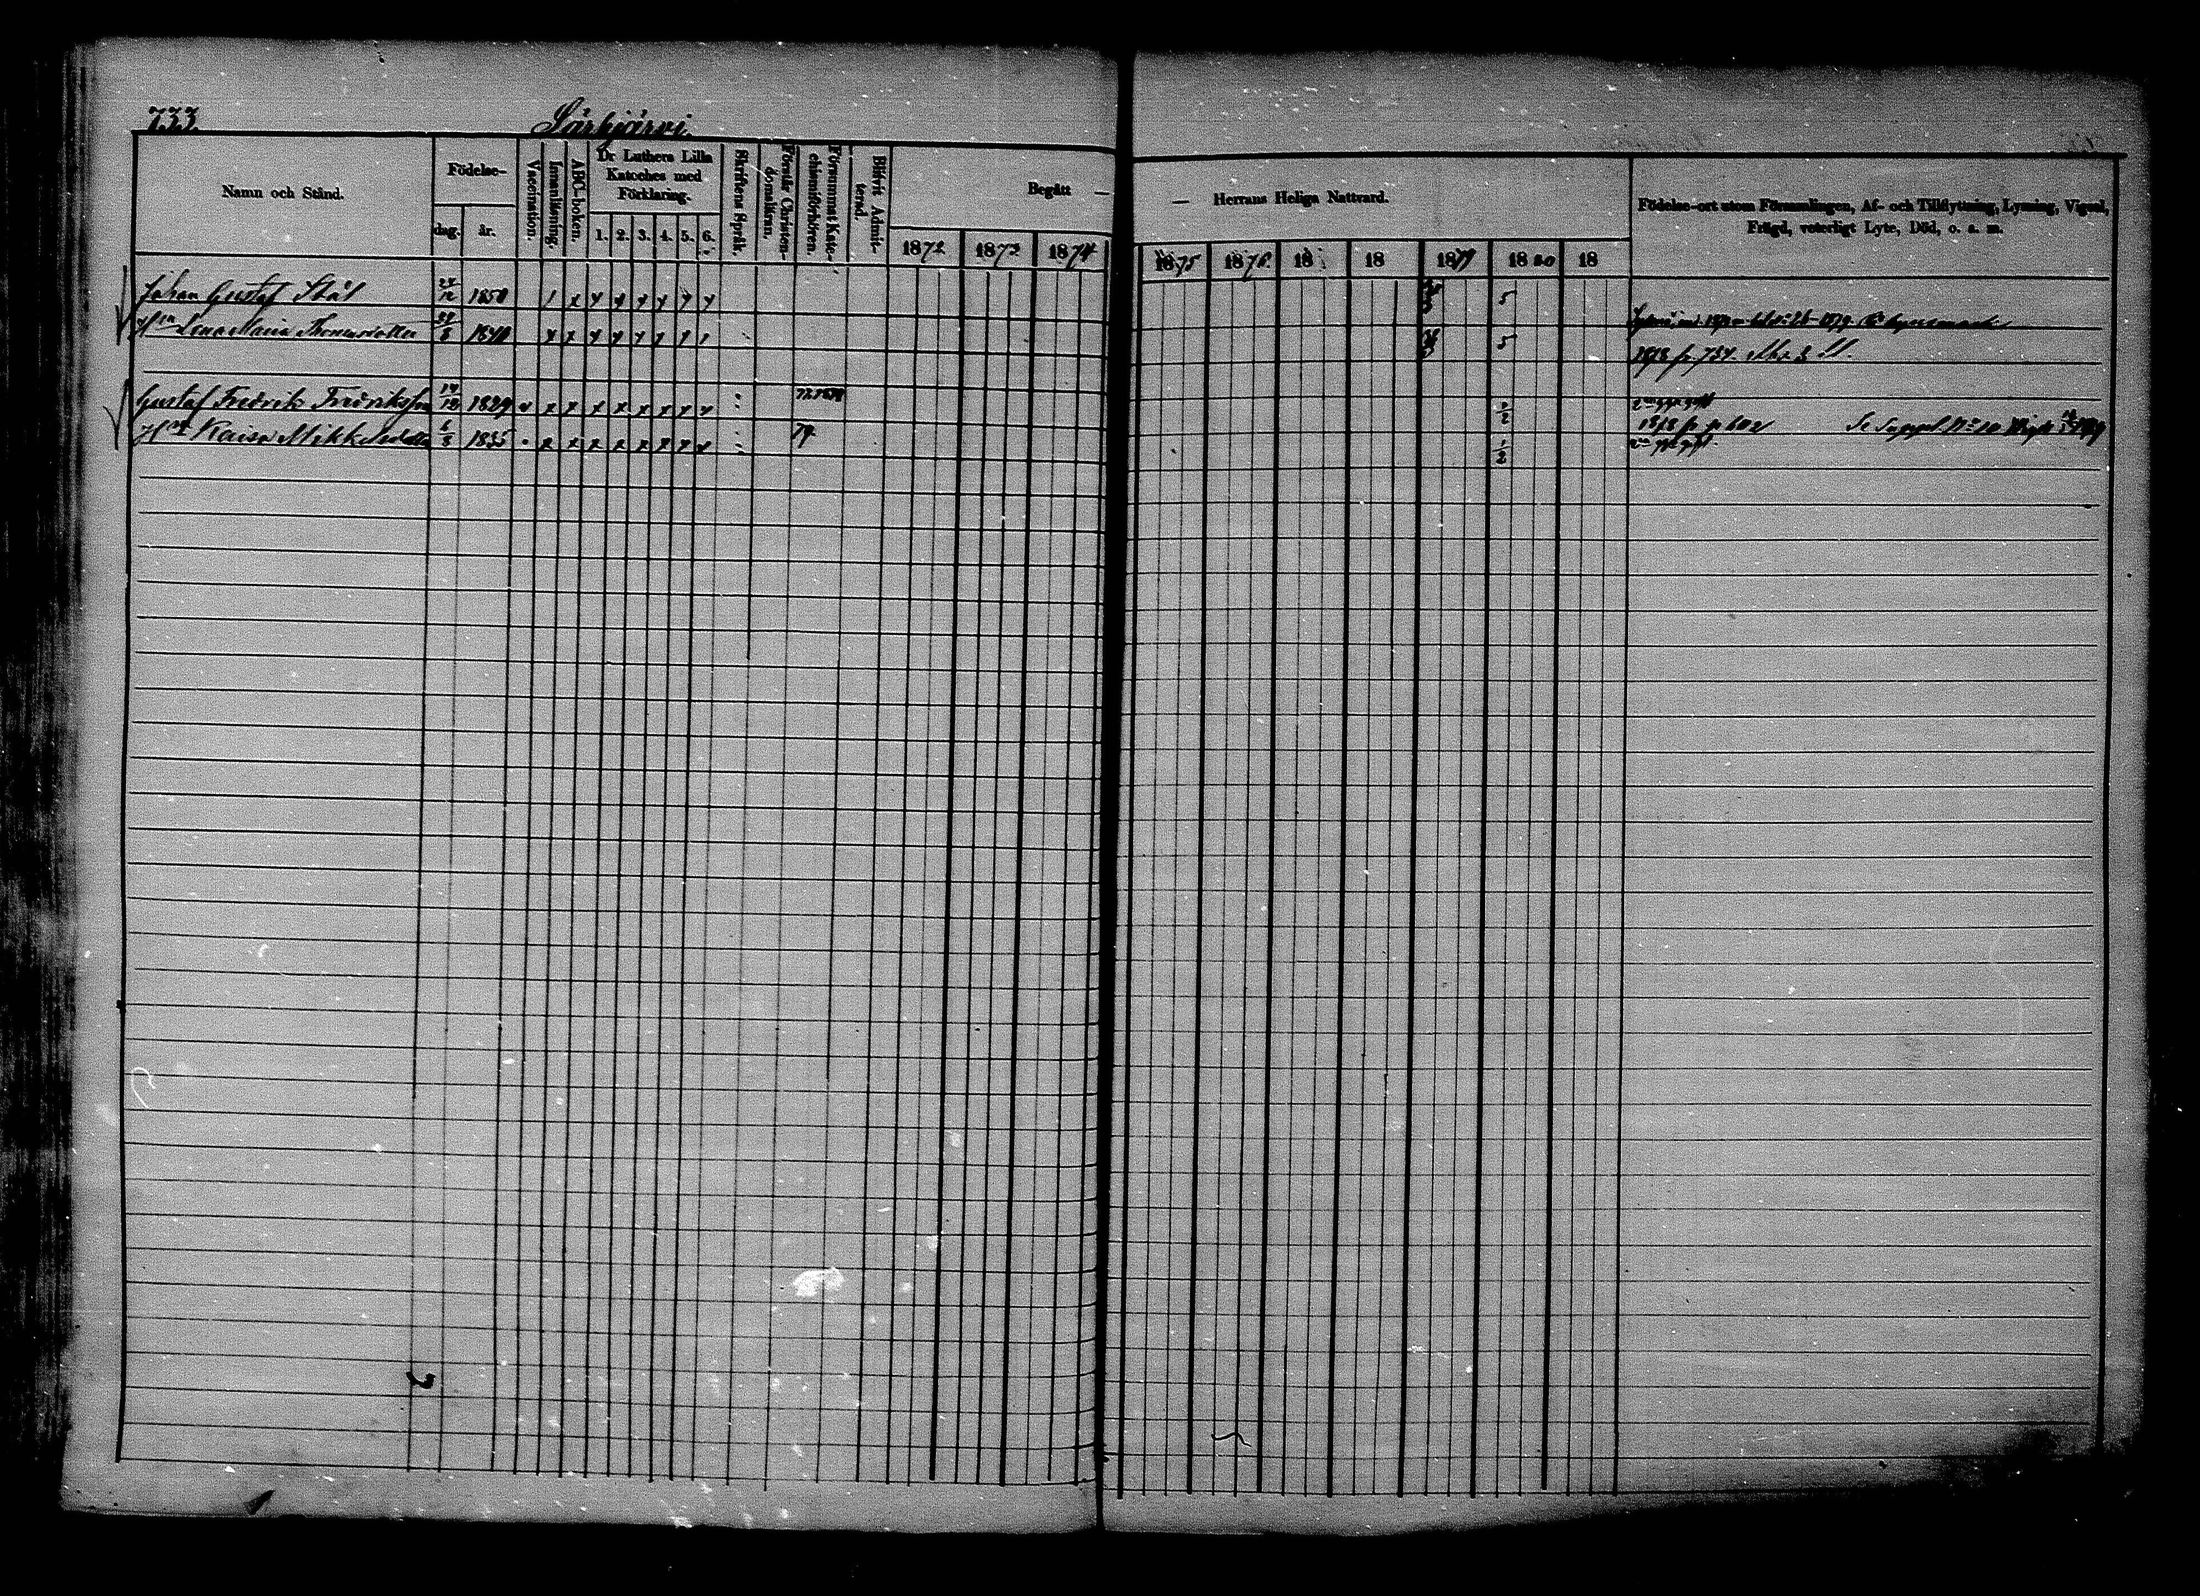 733.
Särkjärvi.
Namn och Stånd.
Födelse-
dag. år.
Vaccination.
Innanläsning.
ABC-boken.
Dr Luthers Lilla
Kateches med
Förklaring.
1. 2. 3. 4. 5. 6.
Skriftens Språk.
Förstår Christen-
domsläran.
Försummat Kate-
chismiförhören.
Blifvit Admit-
terad.
Begått —
1872 1873 1874
— Herrans Heliga Nattvard.
1875 1876 18 18 1879 1880 18
Födelse-ort utom Församlingen, Af- och Tillflyttning, Lysning, Vigsel,
Frägd, veterligt Lyte, Död, o. s. m.
Johan Gustaf Stål 24/12 1850 5
Hn Lena Maria Thomasdotter 1840 5
1878 fr. 734.
Gustaf Fredrik Fredriksson 1829 77.1878
1878 fr. p. 602 Se Suppl. No 10
Hn Kaisa Mikkelsdotter 6/3 1835 79. 1/2